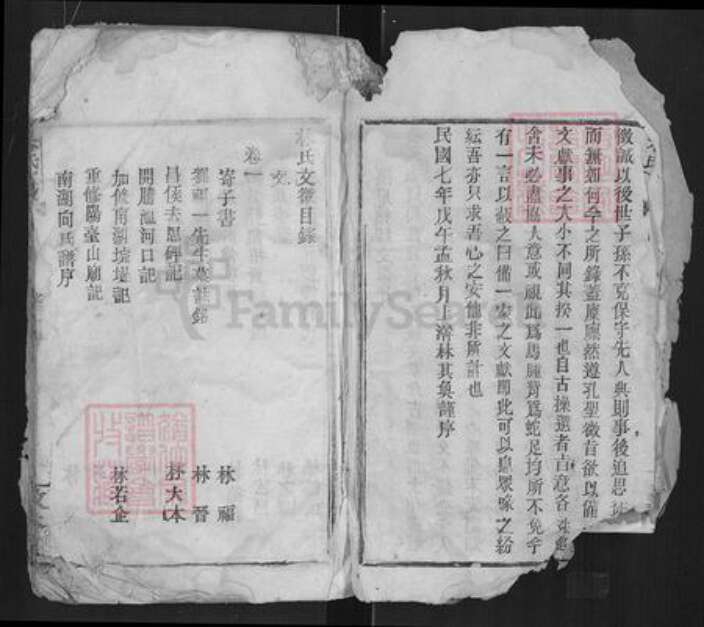 徵誠以後世子孫不克保守先人典則事後追思
而無如何今之所錄蓋廩廩然遵孔聖微旨欲以備
文獻事之大小不同其揆一也自古操選者言意各
舍未必盡協人意或視此爲馬腫背爲蛇足均所不免乎
有一言以蔽之曰備一家之文獻卽此可以息衆喙之紛
紜吾亦只求吾心之安他非所計也
民國七年戊午孟秋月上澣林其奐謹序
林氏文徵目錄
卷一 文
寄子書 林福
一先生墓誌銘 林晉
昌侯去思碑記 林大本
開勝溫河口記
加修南湖垸堤記 林若企
重修陽臺山廟記
南湖向氏譜序
FamilySearch